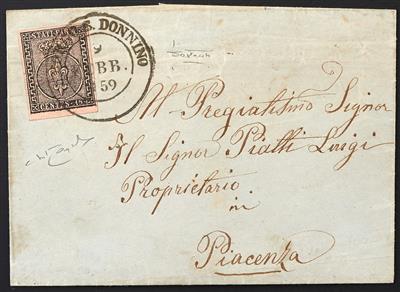 S. DONNINO
9
BB.
59
STATI PARM.
CENT. 15
Al Pregiatissimo Signor
Il Signor Piatti Luigi
Proprietario
in
Piacenza